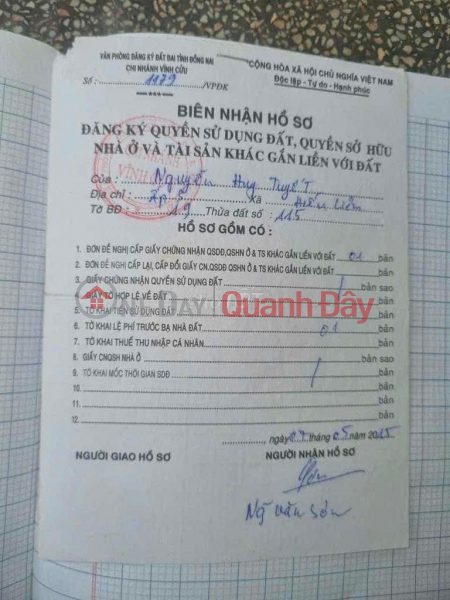 VĂN PHÒNG ĐĂNG KÝ ĐẤT ĐAI TỈNH ĐỒNG NAI
CHI NHÁNH VĨNH CỬU
Số: 1179 /VPĐK
CỘNG HÒA XÃ HỘI CHỦ NGHĨA VIỆT NAM
Độc lập - Tự do - Hạnh phúc
BIÊN NHẬN HỒ SƠ
ĐĂNG KÝ QUYỀN SỬ DỤNG ĐẤT, QUYỀN SỞ HỮU
NHÀ Ở VÀ TÀI SẢN KHÁC GẮN LIỀN VỚI ĐẤT
Của: Nguyễn Huy Tuyết
Địa chỉ: Ấp 5 Xã Hiếu Liêm
Tờ BĐ: 19 Thửa đất số: 115
HỒ SƠ GỒM CÓ:
1. ĐƠN ĐỀ NGHỊ CẤP GIẤY CHỨNG NHẬN QSDĐ,QSHN Ở & TS KHÁC GẮN LIỀN VỚI ĐẤT 01 bản
2. ĐƠN ĐỀ NGHỊ CẤP LẠI, CẤP ĐỔI GIẤY CN.QSDĐ QSHN Ở & TS KHÁC GẮN LIỀN VỚI ĐẤT bản
3. GIẤY CHỨNG NHẬN QUYỀN SỬ DỤNG ĐẤT bản sao
4. GIẤY TỜ HỢP LỆ VỀ ĐẤT bản
5. TỜ KHAI TIỀN SỬ DỤNG ĐẤT bản
6. TỜ KHAI LỆ PHÍ TRƯỚC BẠ NHÀ ĐẤT 01 bản
7. TỜ KHAI THUẾ THU NHẬP CÁ NHÂN bản
8. GIẤY CNQSH NHÀ Ở bản sao
9. TỜ KHAI MỐC THỜI GIAN SDĐ 1 bản
10. bản
11. bản
12. bản
Quanh Đây
, ngày 07 tháng 05 năm 2015
NGƯỜI GIAO HỒ SƠ
NGƯỜI NHẬN HỒ SƠ
Ng văn Sơn